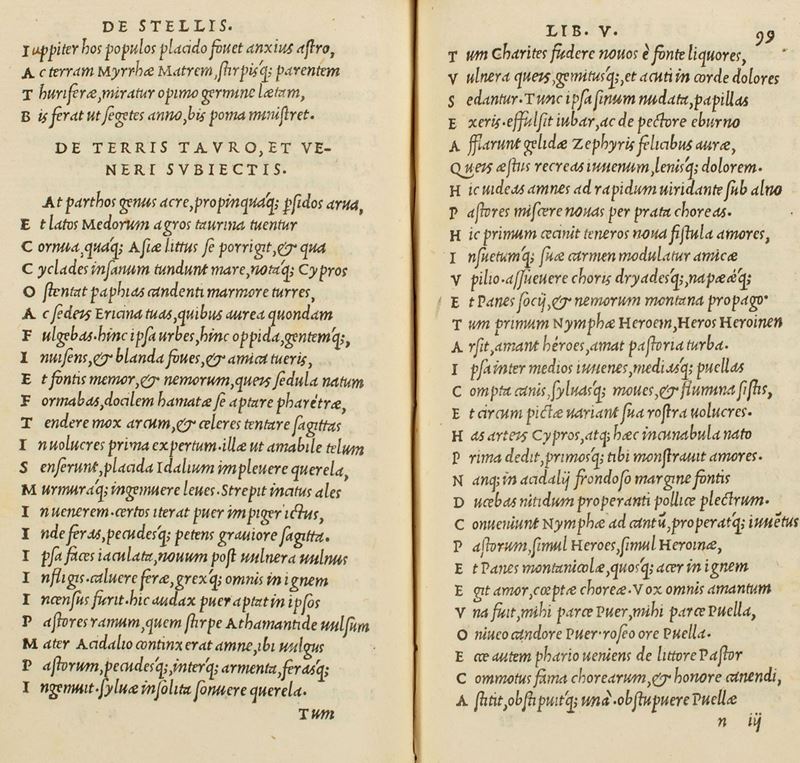 DE STELLIS.
Iuppiter hos populos placido fouet anxius aſtro,
A c terram Myrrhæ Matrem, ſtirpisq; parentem
T huriferæ, miratur opimo germine lætam,
B is ferat ut ſegetes anno, bis poma miniſtret.
DE TERRIS TAVRO, ET VE-
NERI SVBIECTIS.
At parthos genus acre, propinquáq; pſidos arua,
E t latos Medorum agros taurina tuentur
C ornua, quáq; Aſiæ littus ſe porrigit, & qua
C yclades inſanum tundunt mare, notáq; Cypros
O ſtentat paphias candenti marmore turres,
A c ſedeis Ericina tuas, quibus aurea quondam
F ulgebas. hinc ipſa urbes, hinc oppida, gentemq́;,
I nuiſens, & blanda foues, & amica tueris,
E t fontis memor, & nemorum, queis ſedula natum
F ormabas, docilem hamatæ ſe aptare pharétræ,
T endere mox arcum, & celeres tentare ſagittas
I nuolucres prima expertum. illæ ut amabile telum
S enſerunt, placida Idalium impleuere querela,
M urmuráq; ingemuere leues. Strepit incitus ales
I nuenerem. certos iterat puer impiger ictus,
I nde feras, pecudesq́; petens grauiore ſagitta.
I pſa faces iaculata, nouum poſt uulnera uulnus
I nfligis. caluere feræ, grexq́; omnis in ignem
I ncenſus furit. hic audax puer aptat in ipſos
P aſtores ramum, quem ſtirpe Athamantide uulſum
M ater Acidalio continxerat amne, ibi uulgus
P aſtorum, pecudesq́;, interq́; armenta, ferasq́;
I ngemuit. ſyluæ inſolita ſonuere querela.
Tum
LIB. V. 99
T um Charites fudere nouos è fonte liquores,
V ulnera queis, gemitusq́;, et acuti in corde dolores
S edantur. Tunc ipſa ſinum nudata, papillas
E xeris. effulſit iubar, ac de pectore eburno
A fflarunt gelidæ Zephyris felicibus auræ,
Queis æſtus recreas iuuenum, lenisq́; dolorem.
H ic uideas amnes ad rapidum uiridante ſub alno
P aſtores miſcere nouas per prata choreas.
H ic primum cecinit teneros noua fiſtula amores,
I nſuetumq́; ſuæ carmen modulatur amicæ
V pilio. aſſueuere choris dryadesq́;, napææq́;
E t Panes ſocij, & nemorum montana propago.
T um primum Nymphæ Heroem, Heros Heroinen
A rſit, amant héroes, amat paſtoria turba.
I pſa inter medios iuuenes, mediasq́; puellas
C ompta canis, ſyluasq́; moues, & flumina ſiſtis,
E t circum pictæ uariant ſua roſtra uolucres.
H as arteis Cypros, atq; hæc incunabula nato
P rima dedit, primosq́; tibi monſtrauit amores.
N anq; in acidalij frondoſo margine fontis
D ucebas nitidum properanti pollice plectrum.
C onueniunt Nymphæ ad cantũ, properatq́; iuuẽtus
P aſtorum, ſimul Heroes, ſimul Heroinæ,
E t Panes montanicolæ, quosq́; acer in ignem
E git amor, cœptæ choreæ. Vox omnis amantum
V na fuit, mihi parce Puer, mihi parce Puella,
O niueo candore Puer. roſeo ore Puella.
E cce autem phario ueniens de littore Paſtor
C ommotus fama chorearum, & honore canendi,
A ſtitit, obſtipuitq́; unà. obſtupuere Puellæ
n iij